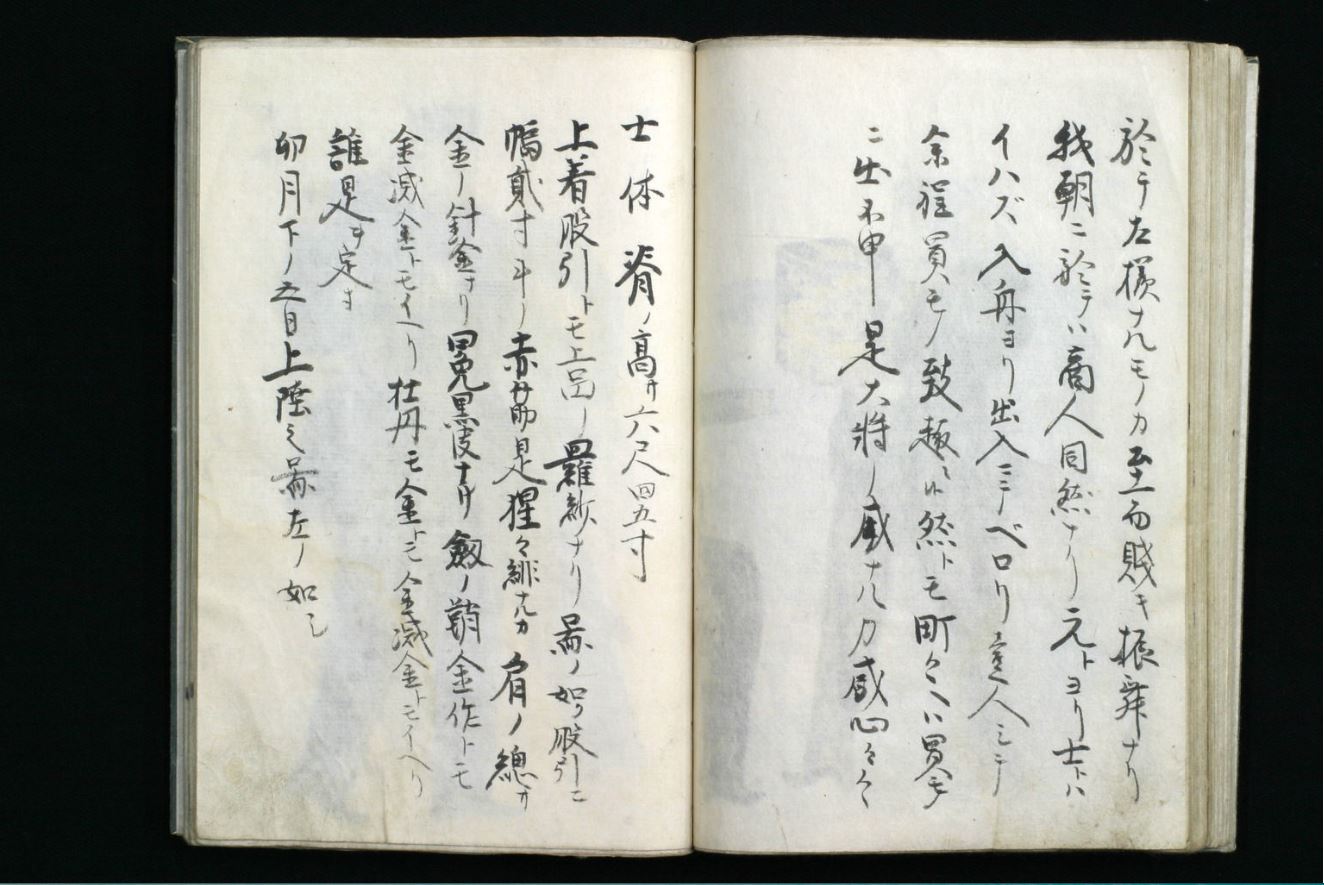 於テ左様ナルモノカ至而賤キ振舞ナリ
我朝ニ於テハ商人同然ナリ元トヨリ士トハ
イハズ入舟ヨリ出入ミテベロリ人ミテ
余程買モノ致趣然トモ町々ヘハ買手
ニ出不申是大将ノ威ナルカ感心々々
士体脊ノ高サ六尺四五寸
上着股引トモ上品ノ羅紗ナリ図ノ如ク股引ニ
幅貳寸斗ノ赤筋是猩々緋ナルカ肩ノ總カ
金ノ針金ナリ冕黒皮ナリ劔ノ鞘金作トモ
金滅金トモイヘリ牡丹モ金トモ金滅金トモイヘリ
誰是ヲ定
卯月下ノ五日上陸之図左ノ如シ